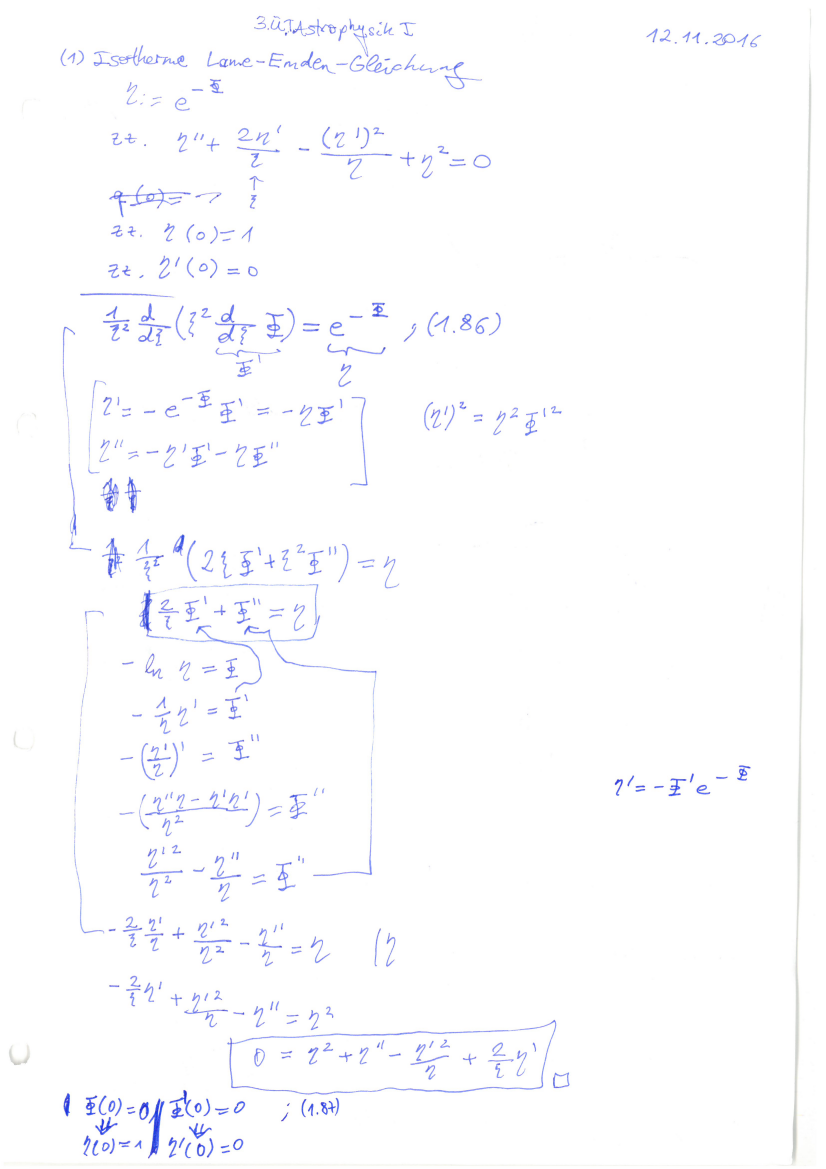 3.Ü. Astrophysik I
12.11.2016
(1) Isotherme Lane-Emden-Gleichung
η := e^{-Φ}
zz. η'' + 2η'/ξ - (η')²/η + η² = 0
↑
ξ
zz. η(0) = 1
zz. η'(0) = 0
1/ξ² d/dξ (ξ² d/dξ Φ) = e^{-Φ} ; (1.86)
Φ' η
η' = -e^{-Φ} Φ' = -ηΦ' (η')² = η²Φ'²
η'' = -η'Φ' - ηΦ''
1/ξ² (2ξΦ' + ξ²Φ'') = η
2/ξ Φ' + Φ'' = η
-ln η = Φ
-1/η η' = Φ'
-(η'/η)' = Φ''
η' = -Φ'e^{-Φ}
-((η''η - η'η')/η²) = Φ''
η'²/η² - η''/η = Φ''
-2/ξ η'/η + η'²/η² - η''/η = η |η
-2/ξ η' + η'²/η - η'' = η²
0 = η² + η'' - η'²/η + 2/ξ η' □
Φ(0) = 0 Φ'(0) = 0 ; (1.87)
⇓ ⇓
η(0) = 1 η'(0) = 0